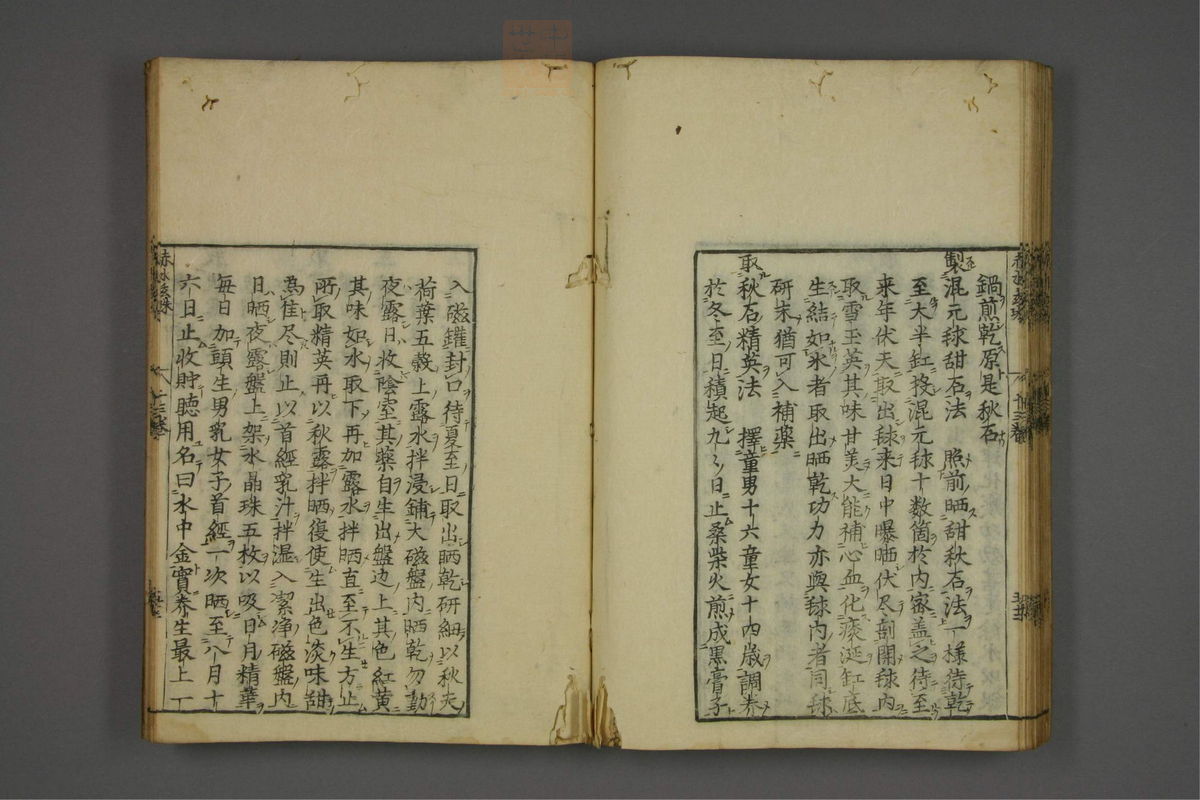 鍋煎乾原是秋石
製混元毬甜石法　照前晒甜秋石法一樣待乾
至大半缸投混元毬十數箇於内密盖之待至
来年伏天取出毬来日中曝晒伏尽剖開毬内
取雪玉英其味甘美大能補心血化痰涎缸底
生結如氷者取出晒乾功力亦與毬内者同毬
研末猶可入補藥
取秋石精英法　擇童男十六童女十四歳調养
於冬至日積起九〻日止桑柴火煎成黒膏子
入磁罐封口待夏至日取出晒乾研細以秋天
荷葉五穀上露水拌浸鋪大磁盤内晒乾勿動
夜露日收陰室其藥自生出盤边上其色紅黄
其味如氷取下再加露水拌晒直至不生方止
所取精英再以秋露拌晒復使生出色淡味甜
為佳尽則止以首經乳汁拌濕入潔净磁盤内
日晒夜露盤上架水晶珠五枚以吸日月精華
毎日加頭生男乳女子首經一次晒至八月十
六日止收貯聴用名曰水中金實养生最上一
赤水玄珠